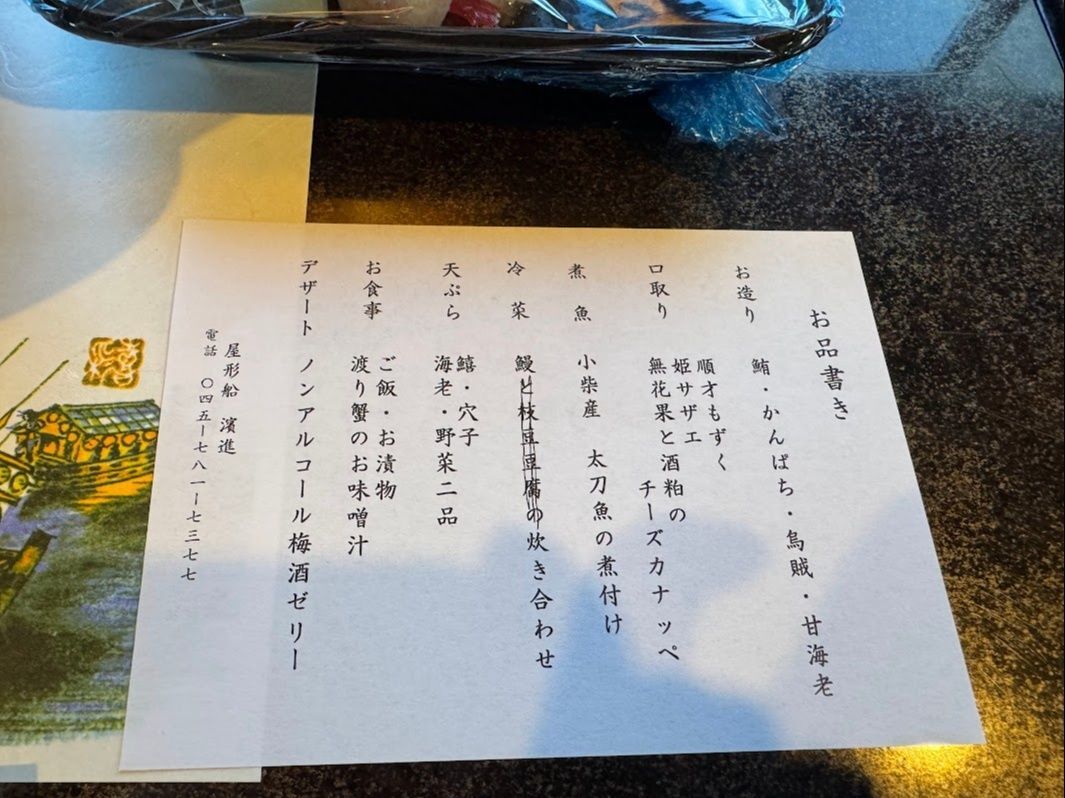 お品書き
お造り　鮪・かんぱち・烏賊・甘海老
口取り　順才もずく
姫サザエ
無花果と酒粕の
チーズカナッペ
煮魚　小柴産　太刀魚の煮付け
冷菜　鰻と枝豆豆腐の炊き合わせ
天ぷら　鱚・穴子
海老・野菜二品
お食事　ご飯・お漬物
渡り蟹のお味噌汁
デザート　ノンアルコール梅酒ゼリー
屋形船　濱進
電話　〇四五ー七八一ー七三七七